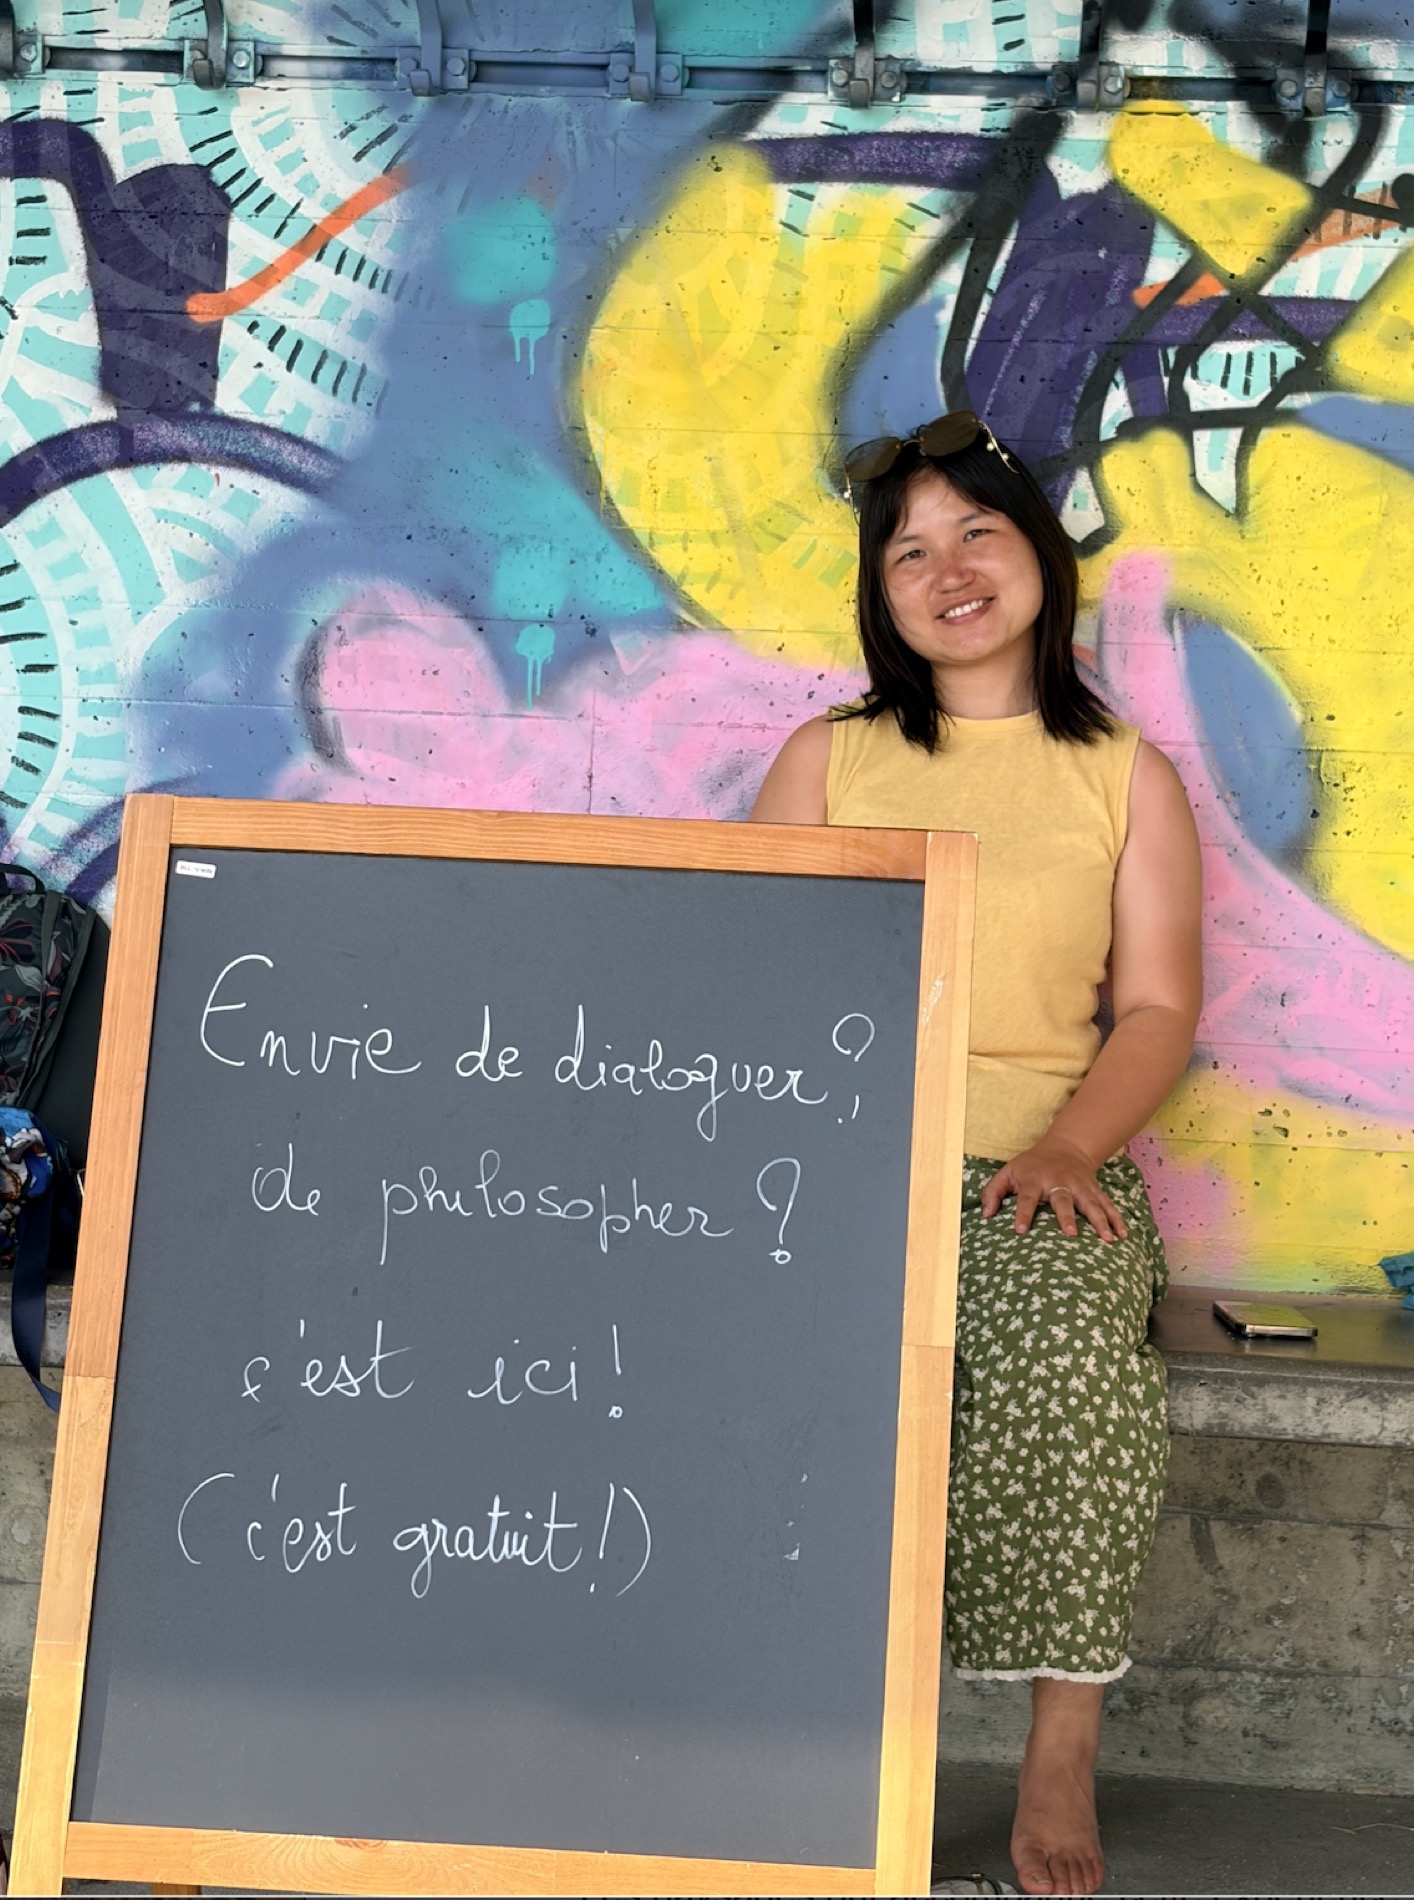 Envie de dialoguer?
de philosopher?
c'est ici!
(c'est gratuit!)